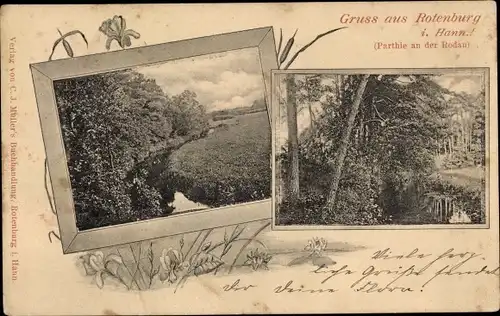 Gruss aus Rotenburg
i. Hann.!
(Parthie an der Rodau)
Verlag von C. J. Müller's Buchhandlung, Rotenburg i. Hann
Viele herz-
liche Grüsse sendet
Dir deine Flora.